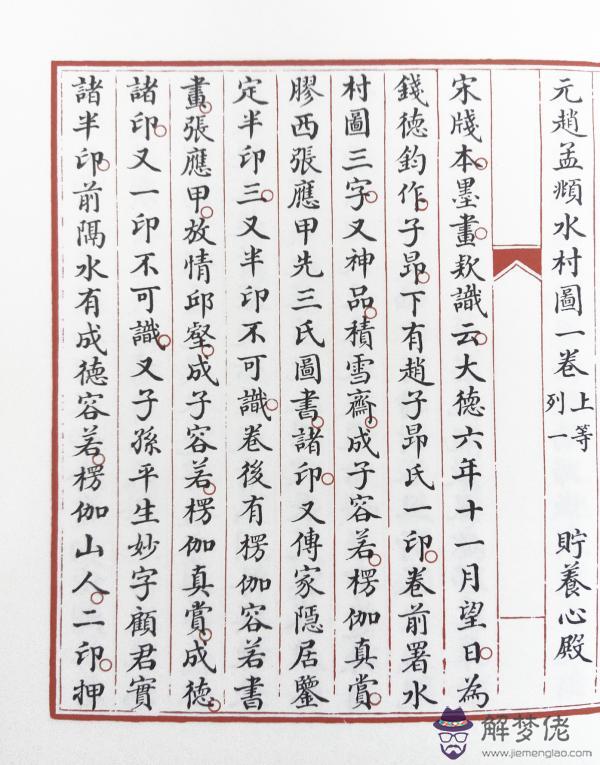 元趙孟頫水村圖一卷 上等 列一 貯養心殿
宋牋本。墨畫。款識云。大德六年十一月望日。為
錢德鈞作。子昂。下有趙子昂氏一印。卷前署水
村圖三字。又神品。積雪齋。成子容若。楞伽真賞。
膠西張應甲先三氏圖書。諸印。又傳家隱居鑒
定半印三。又半印不可識。卷後有楞伽容若書
畫。張應甲。放情邱壑。成子容若。楞伽真賞。成德。
諸印。又一印不可識。又子孫平生妙字顧君實
諸半印。前隅水有成德容若。楞伽山人。二印。押
解梦佬
www.jiemenglao.com